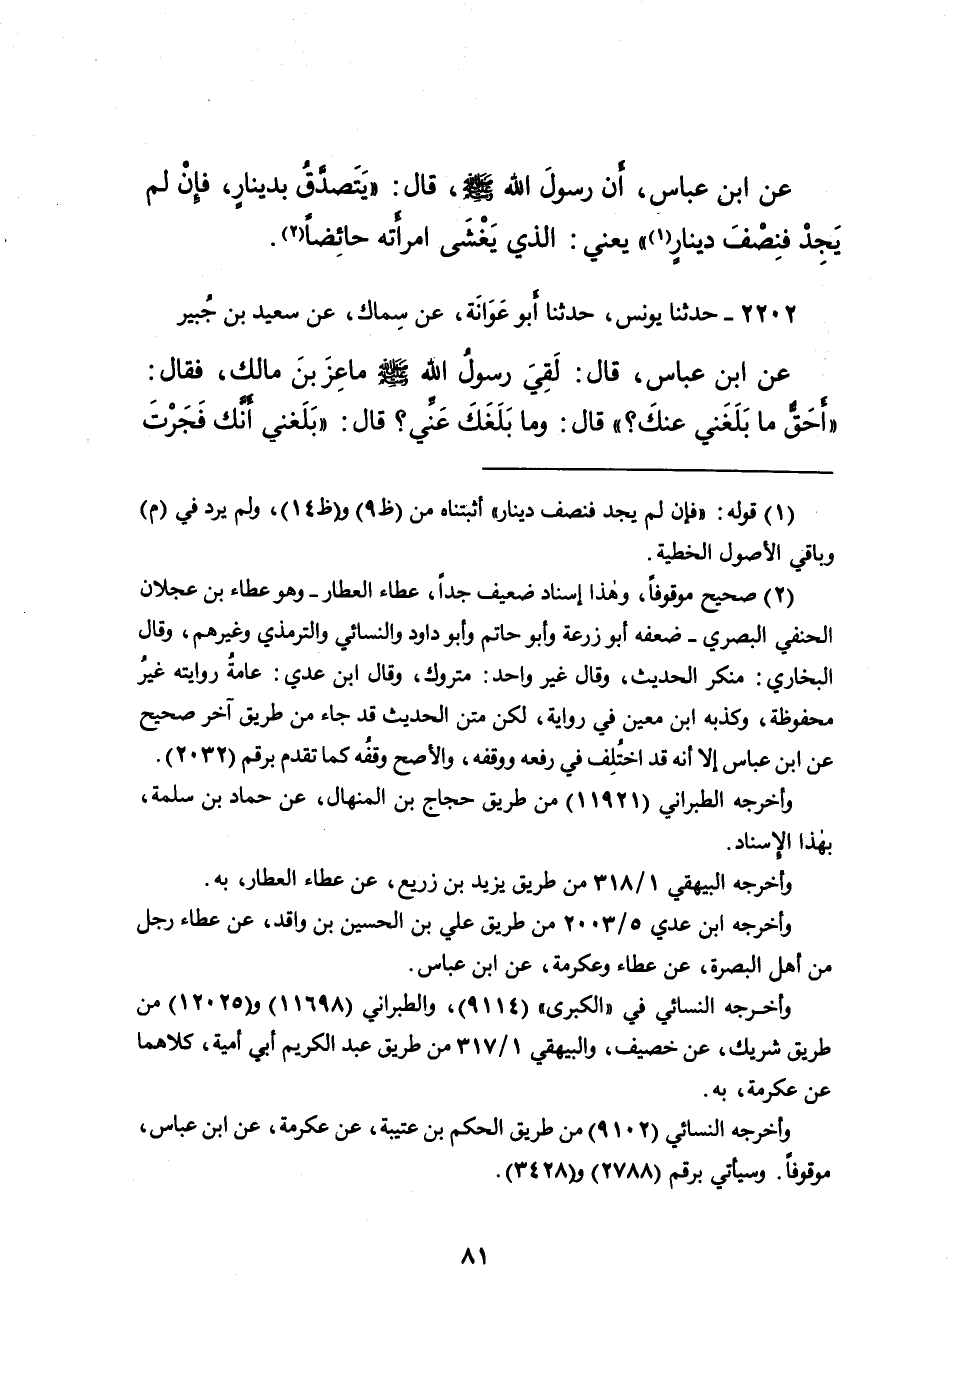 عن ابن عباس، أَن رسولَ الله ﷺ، قال: «يَتَصدَّقُ بدينارٍ، فإِنْ لم
يَجِدْ فنِصْفَ دينارٍ(١)» يعني: الذي يَغْشَى امرأَته حائِضاً(٢).
٢٢٠٢ ـ حدثنا يونس، حدثنا أَبو عَوَانَة، عن سِماك، عن سعيد بن جُبير
عن ابن عباس، قال: لَقِيَ رسولُ الله ﷺ ماعِزَ بنَ مالك، فقال:
«أَحَقٌّ ما بَلَغَني عنكَ؟» قال: وما بَلَغَكَ عَنِّي؟ قال: «بَلَغني أَنَّك فَجَرْتَ
(١) قوله: «فإن لم يجد فنصف دينار» أثبتناه من (ظ٩) و(ظ١٤)، ولم يرد في (م)
وباقي الأصول الخطية.
(٢) صحيح موقوفاً، وهٰذا إسناد ضعيف جداً، عطاء العطار ـ وهو عطاء بن عجلان
الحنفي البصري ـ ضعفه أبو زرعة وأبو حاتم وأبو داود والنسائي والترمذي وغيرهم، وقال
البخاري: منكر الحديث، وقال غير واحد: متروك، وقال ابن عدي: عامةُ روايته غيرُ
محفوظة، وكذبه ابن معين في رواية، لكن متن الحديث قد جاء من طريق آخر صحيح
عن ابن عباس إلا أنه قد اختُلِف في رفعه ووقفه، والأصح وقفُه كما تقدم برقم (٢٠٣٢).
وأخرجه الطبراني (١١٩٢١) من طريق حجاج بن المنهال، عن حماد بن سلمة،
بهٰذا الإِسناد.
وأخرجه البيهقي ٣١٨/١ من طريق يزيد بن زريع، عن عطاء العطار، به.
وأخرجه ابن عدي ٢٠٠٣/٥ من طريق علي بن الحسين بن واقد، عن عطاء رجل
من أهل البصرة، عن عطاء وعكرمة، عن ابن عباس.
وأخرجه النسائي في «الكبرى» (٩١١٤)، والطبراني (١١٦٩٨) و(١٢٠٢٥) من
طريق شريك، عن خصيف، والبيهقي ٣١٧/١ من طريق عبد الكريم أبي أمية، كلاهما
عن عكرمة، به.
وأخرجه النسائي (٩١٠٢) من طريق الحكم بن عتيبة، عن عكرمة، عن ابن عباس،
موقوفاً. وسيأتي برقم (٢٧٨٨) و(٣٤٢٨).
٨١